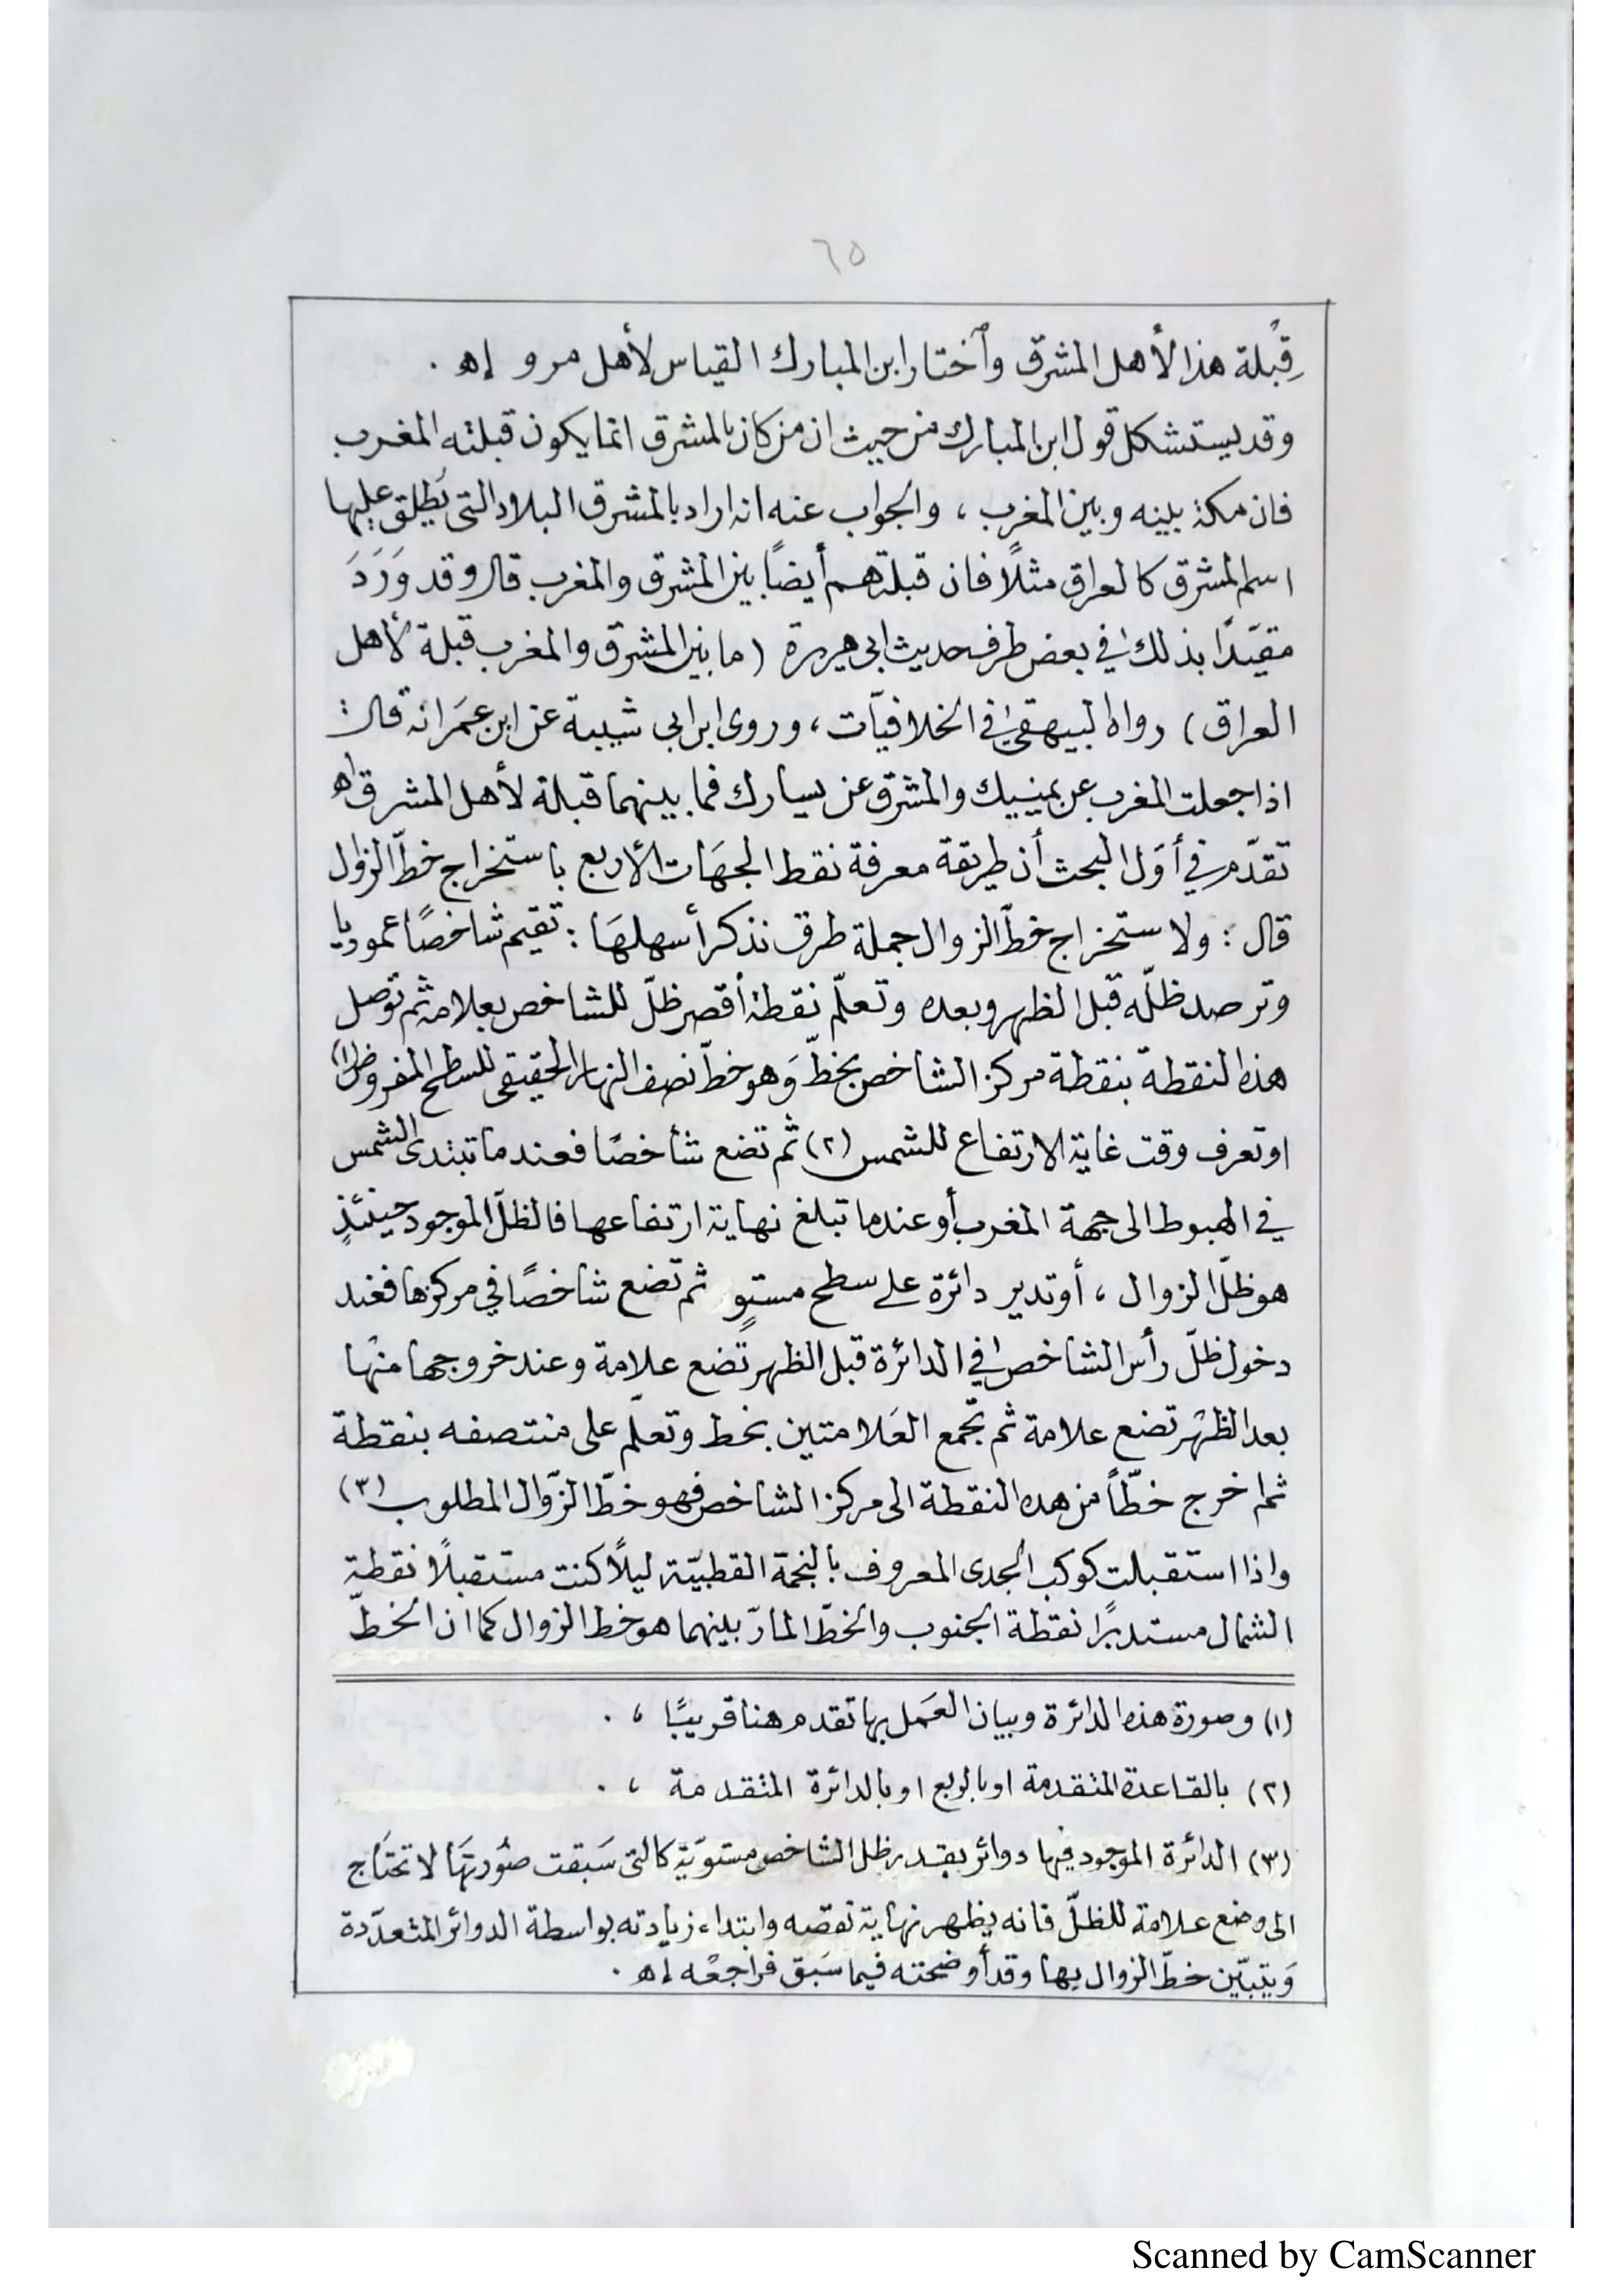 ٦٥
قِبْلة هذا لأهل المشرق وٱختار ابن المبارك القياس لأهل مرو إﻫ .
وقد يستشكل قول ابن المبارك من حيث ان من كان بالمشرق انما يكون قبلته المغرب
فان مكة بينه وبين المغرب ، والجواب عنه انه اراد بالمشرق البلاد التى يُطلق عليها
اسم المشرق كالعراق مثلًا فان قبلتهم أيضًا بين المشرق والمغرب قال وقد وَرَدَ
مقيّدًا بذلك في بعض طرف حديث ابى هريرة ( ما بين المشرق والمغرب قبلة لأهل
العراق ) رواه البيهقي في الخلافيّات ، وروى ابن ابى شيبة عن ابن عمَر انه قال :
اذا جعلت المغرب عن يمينيك والمشرق عن يسارك فما بينهما قبلة لأهل المشرق اﻫ
تقدّم في أوَل البحث أن طريقة معرفة نقط الجهَات الأربع باستخراج خطّ الزوال
قال : ولاستخراج خطّ الزوال جملة طرق نذكر أسهلهَا : تقيم شاخصًا عموديا
وترصد ظلّه قبل الظهر وبعده وتعلّم نقطة أقصر ظلّ للشاخص بعلامة ثم توصل
هذه النقطة بنقطة مركز الشاخص بخطّ وَهو خطّ نصف النهار الحقيقى للسطح المفروض (١)
او تعرف وقت غاية الارتفاع للشمس (٢) ثم تضع شاخصًا فعندما تبتدى الشمس
في الهبوط الى جهة المغرب أو عندما تبلغ نهاية ارتفاعها فالظلّ الموجود حينئذٍ
هو ظلّ الزوال ، أو تدير دائرة على سطح مستوٍ ثم تضع شاخصًا في مركزها فعند
دخول ظلّ رأس الشاخص في الدائرة قبل الظهر تضع علامة وعند خروجها منها
بعد الظهر تضع علامة ثم تجمع العَلامتين بخط وتعلّم على منتصفه بنقطة
ثم اخرج خطّاً من هذه النقطة الى مركز الشاخص فهو خطّ الزّوال المطلوب (٣)
واذا استقبلت كوكب الجدى المعروف بالنجمة القطبيّة ليلًا كنت مستقبلًا نقطة
الشمال مستدبرًا نقطة الجنوب والخطّ المارّ بينهما هو خط الزوال كما ان الخطّ
(١) وصورة هذه الدائرة وبيان العَمل بها تقدم هنا قريبًا ، .
(٢) بالقاعدة المتقدمة او بالربع او بالدائرة المتقدمة ، .
(٣) الدائرة الموجود فيها دوائر بقدر ظل الشاخص مستويّة كالتى سَبقت صُورتهَا لا تحتَاج
الى وضع علامة للظلّ فانه يظهر نهاية نقصه وابتداء زيادته بواسطة الدوائر المتعدّدة
وَيتبيّن خطّ الزوال بها وقد أوضحته فيما سَبق فراجعْه إﻫ .
Scanned by CamScanner